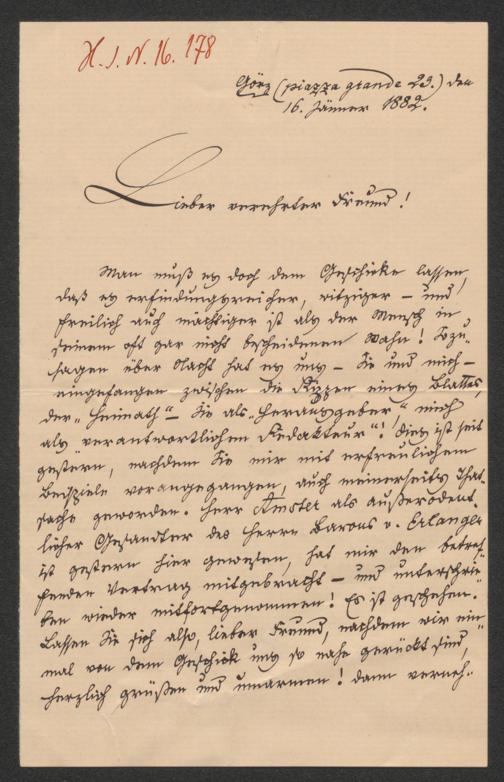 H. I. N. 16. 178
Görz (piazza grande 29.) den
16. Jänner 1882.
Lieber verehrter Freund!
Man muß es doch dem Geschicke lassen,
daß es erfindungsreicher, witziger – und
freilich auch mächtiger ist als der Mensch in
seinem oft gar nicht bescheidenen Wahn! Sozu-
sagen über Nacht hat es uns – Sie und mich –
eingefangen zwischen die Rippen eines Blattes,
der „Heimath" – Sie als „Herausgeber" mich
als „verantwortlichen Redakteur"! Dies ist seit
gestern, nachdem Sie mir mit erfreulichem
Beispiele vorangegangen, auch meinerseits That-
sache geworden. Herr Amster als außerordent-
licher Gesandter des Herrn Barons v. Erlanger
ist gestern hier gewesen, hat mir den betref-
fenden Vertrag mitgebracht – und unterschrie-
ben wieder mitfortgenommen! Es ist geschehen.
Lassen Sie sich also, lieber Freund, nachdem wir ein-
mal von dem Geschick uns so nahe gerückt sind,
herzlich grüßen und umarmen! dann verneh-